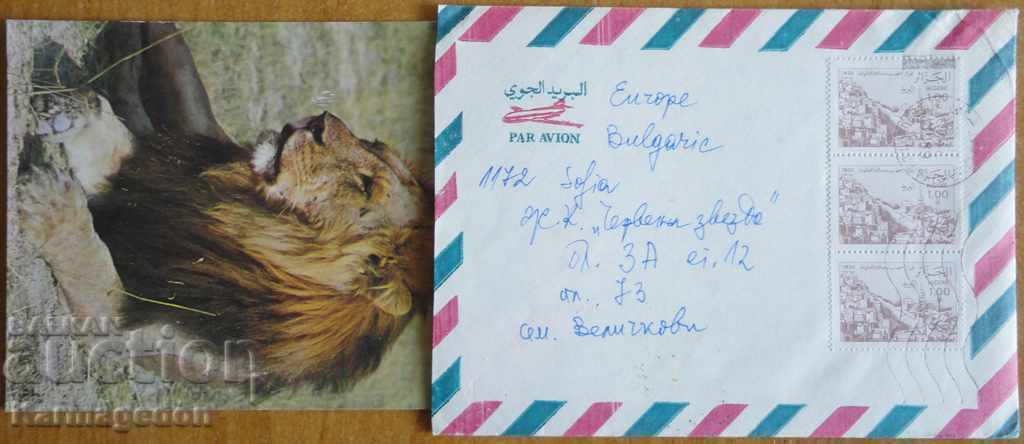 البريد الجوي
PAR AVION
Europe
Bulgaric
1172 Sofia
ж.к. „Червена звезда"
бл. 3А ет. 12
ап. 73
сем. Величкови
الجزائر
ALGERIE
1.00
الجزائر
1.00
الجزائر
1.00
BALKAN
auction
Karmagedon